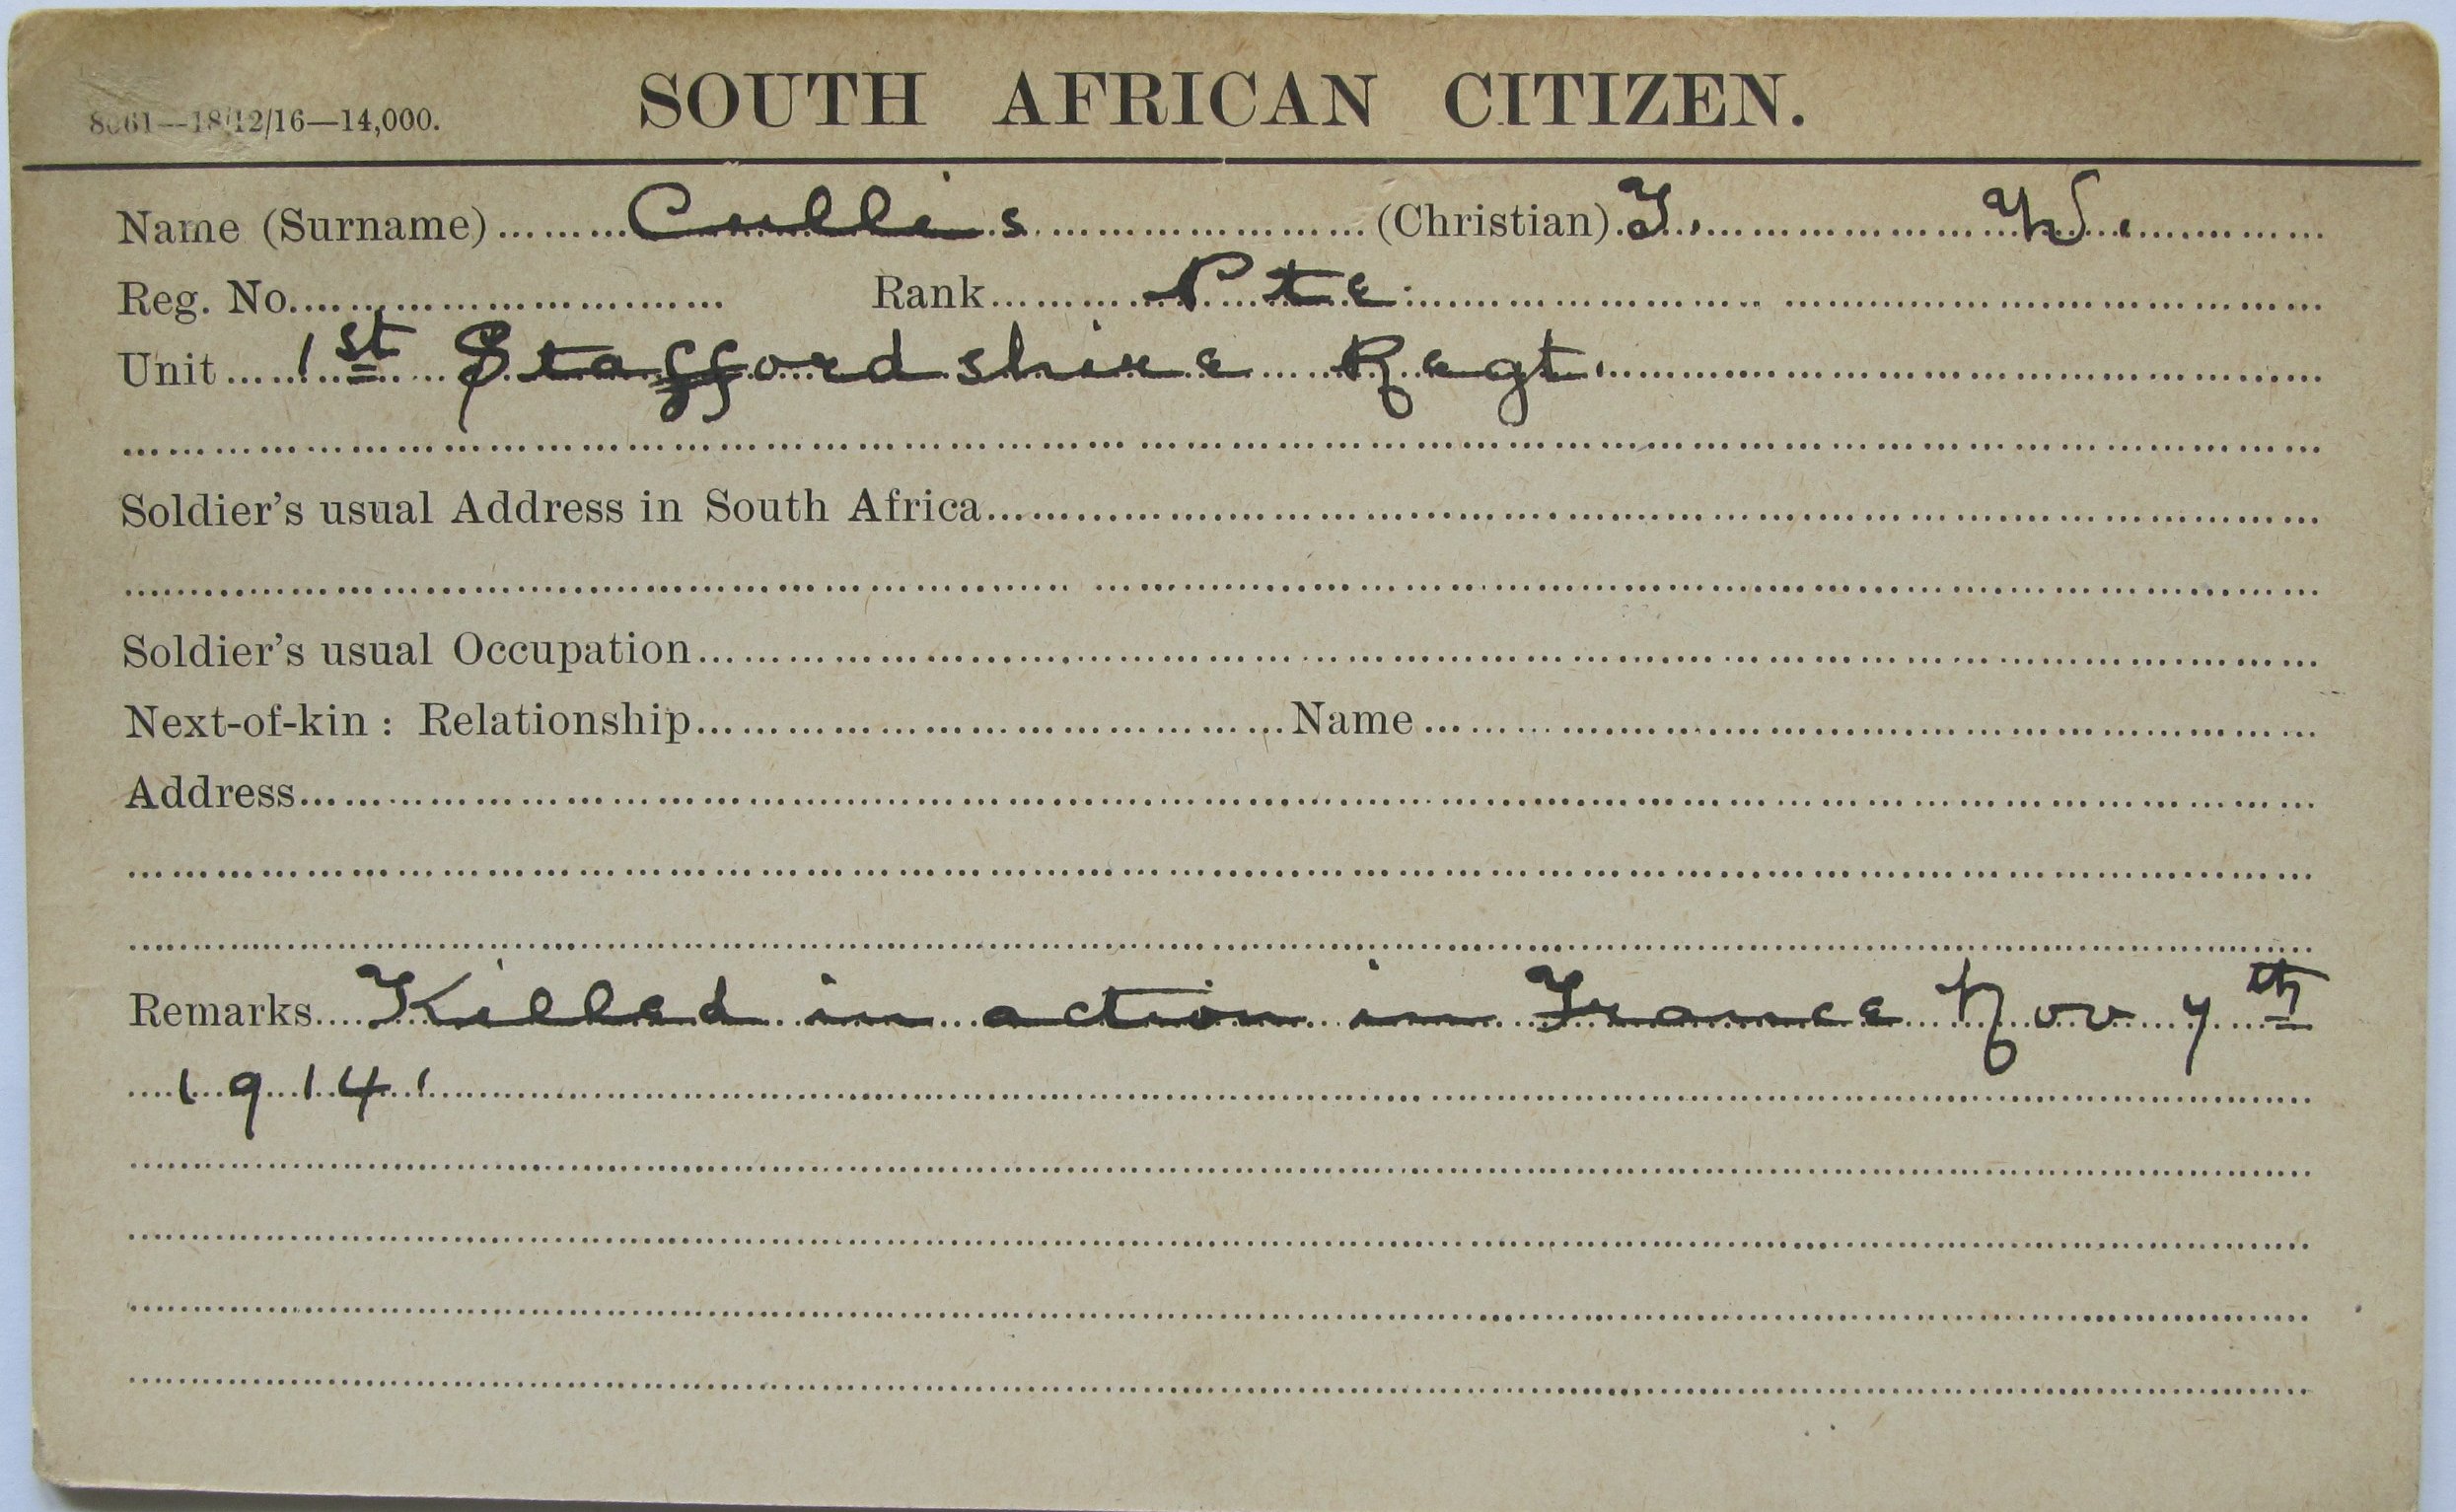 SOUTH AFRICAN CITIZEN.
8061—18/12/16—14,000.
Name (Surname) Cullis (Christian) W.
Reg. No. Rank Pte.
Unit 1st Staffordshire Regt.
Soldier's usual Address in South Africa
Soldier's usual Occupation
Next-of-kin: Relationship Name
Address
Remarks Killed in action in France Nov 7th
1914.